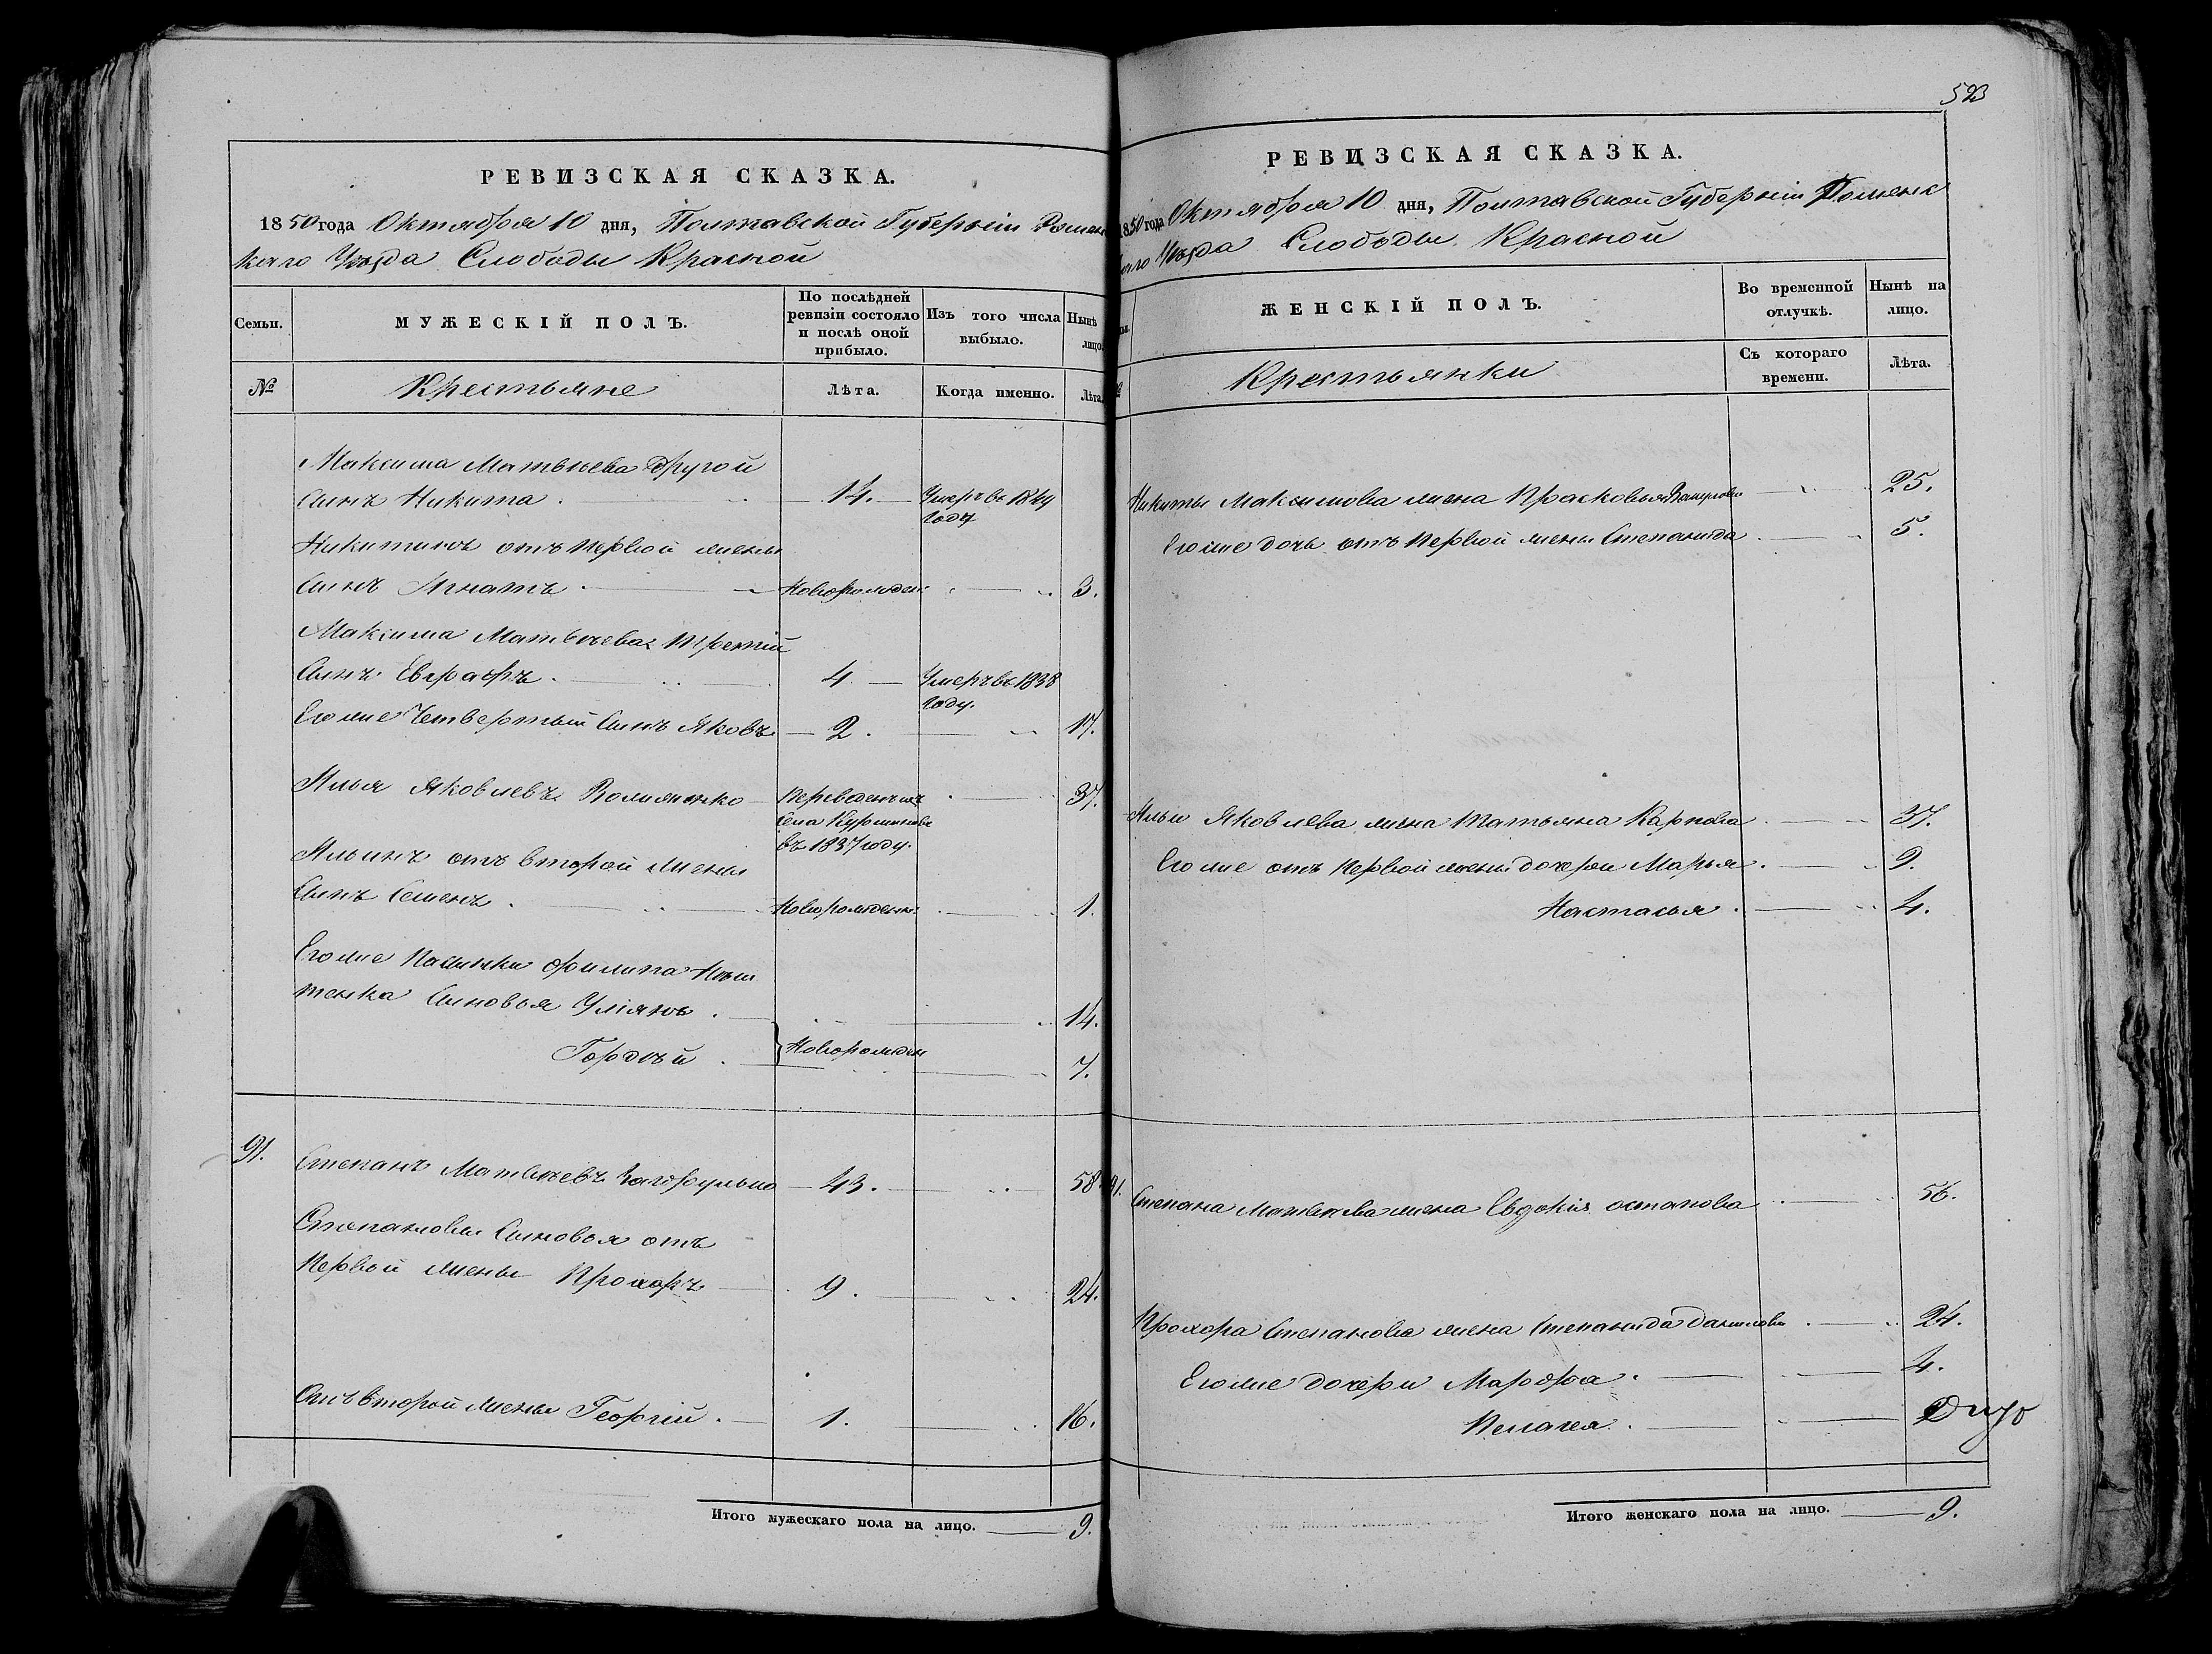 РЕВИЗСКАЯ СКАЗКА.
1850 года Октября 10 дня, Полтавской Губерніи Ромен
скаго Уѣзда Слободы Красной
Семьи.
МУЖЕСКІЙ ПОЛЪ.
По послѣдней ревизіи состояло и послѣ оной прибыло.
Изъ того числа выбыло.
Нынѣ лицо.
№
Крестьяне
Лѣта.
Когда именно.
Лѣта.
Максима Матвѣева другой
Сынъ Никита 14. Умеръ въ 1849 году
Никитинъ отъ первой жены
Сынъ Игнатъ Новорожден: 3.
Максима Матвѣева третій
Сынъ Евграфъ 4 Умеръ въ 1838 году.
Его же Четвертый Сынъ Яковъ 2. 17.
Илья Яковлевъ Переведенъ изъ Села въ 1837 году. 37.
Ильинъ отъ второй жены
Сынъ Семенъ Новорожденн: 1.
Его же пасынки Филипа
тенка Сыновья Уліянъ 14.
Гордѣй Новорожден 7.
91. Степанъ Матвѣевъ 43. 58.
Степановы Сыновья отъ
Первой жены Прохоръ 9. 24.
Отъ второй жены Георгій 1. 16.
Итого мужескаго пола на лицо. 9.
523
РЕВИЗСКАЯ СКАЗКА.
1850 года Октября 10 дня, Полтавской Губерніи Роменс
каго Уѣзда Слободы Красной
ЖЕНСКІЙ ПОЛЪ.
Во временной отлучкѣ.
Нынѣ на лицо.
Крестьянки
Съ котораго времени.
Лѣта.
Никиты Максимова жена Прасковья 25.
Его же дочь отъ первой жены Степанида 5.
Ильи Яковлева жена Татьяна Карпова 37.
Его же отъ первой жены дочери Марья 9.
Настасья 4.
91. Степана Матвѣева жена Евдокія Остапова 56.
Прохора Степанова жена Степанида Данилова 24.
Его же дочери Марфа 4.
Пелагея
Итого женскаго пола на лицо. 9.